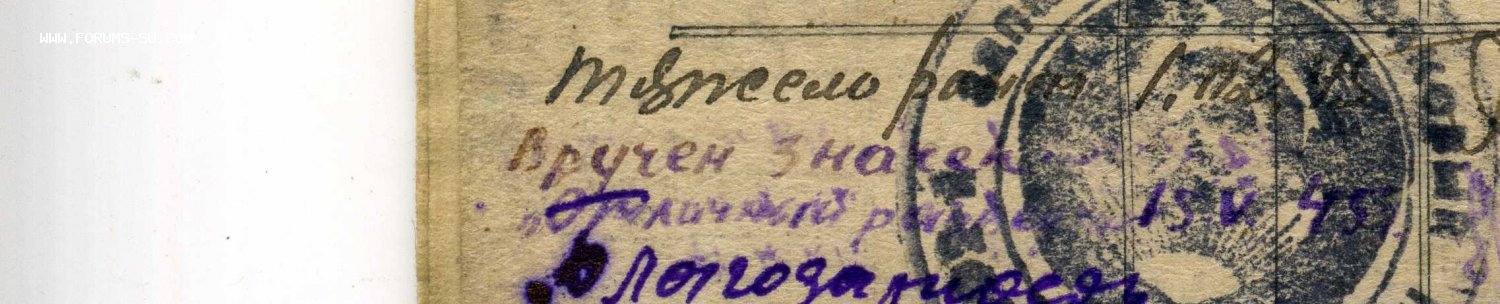 www.forums-su.com
тяжело ранен 1.
Вручен значек
"Отличный разведчик" 15.V.45г.
Благодарность